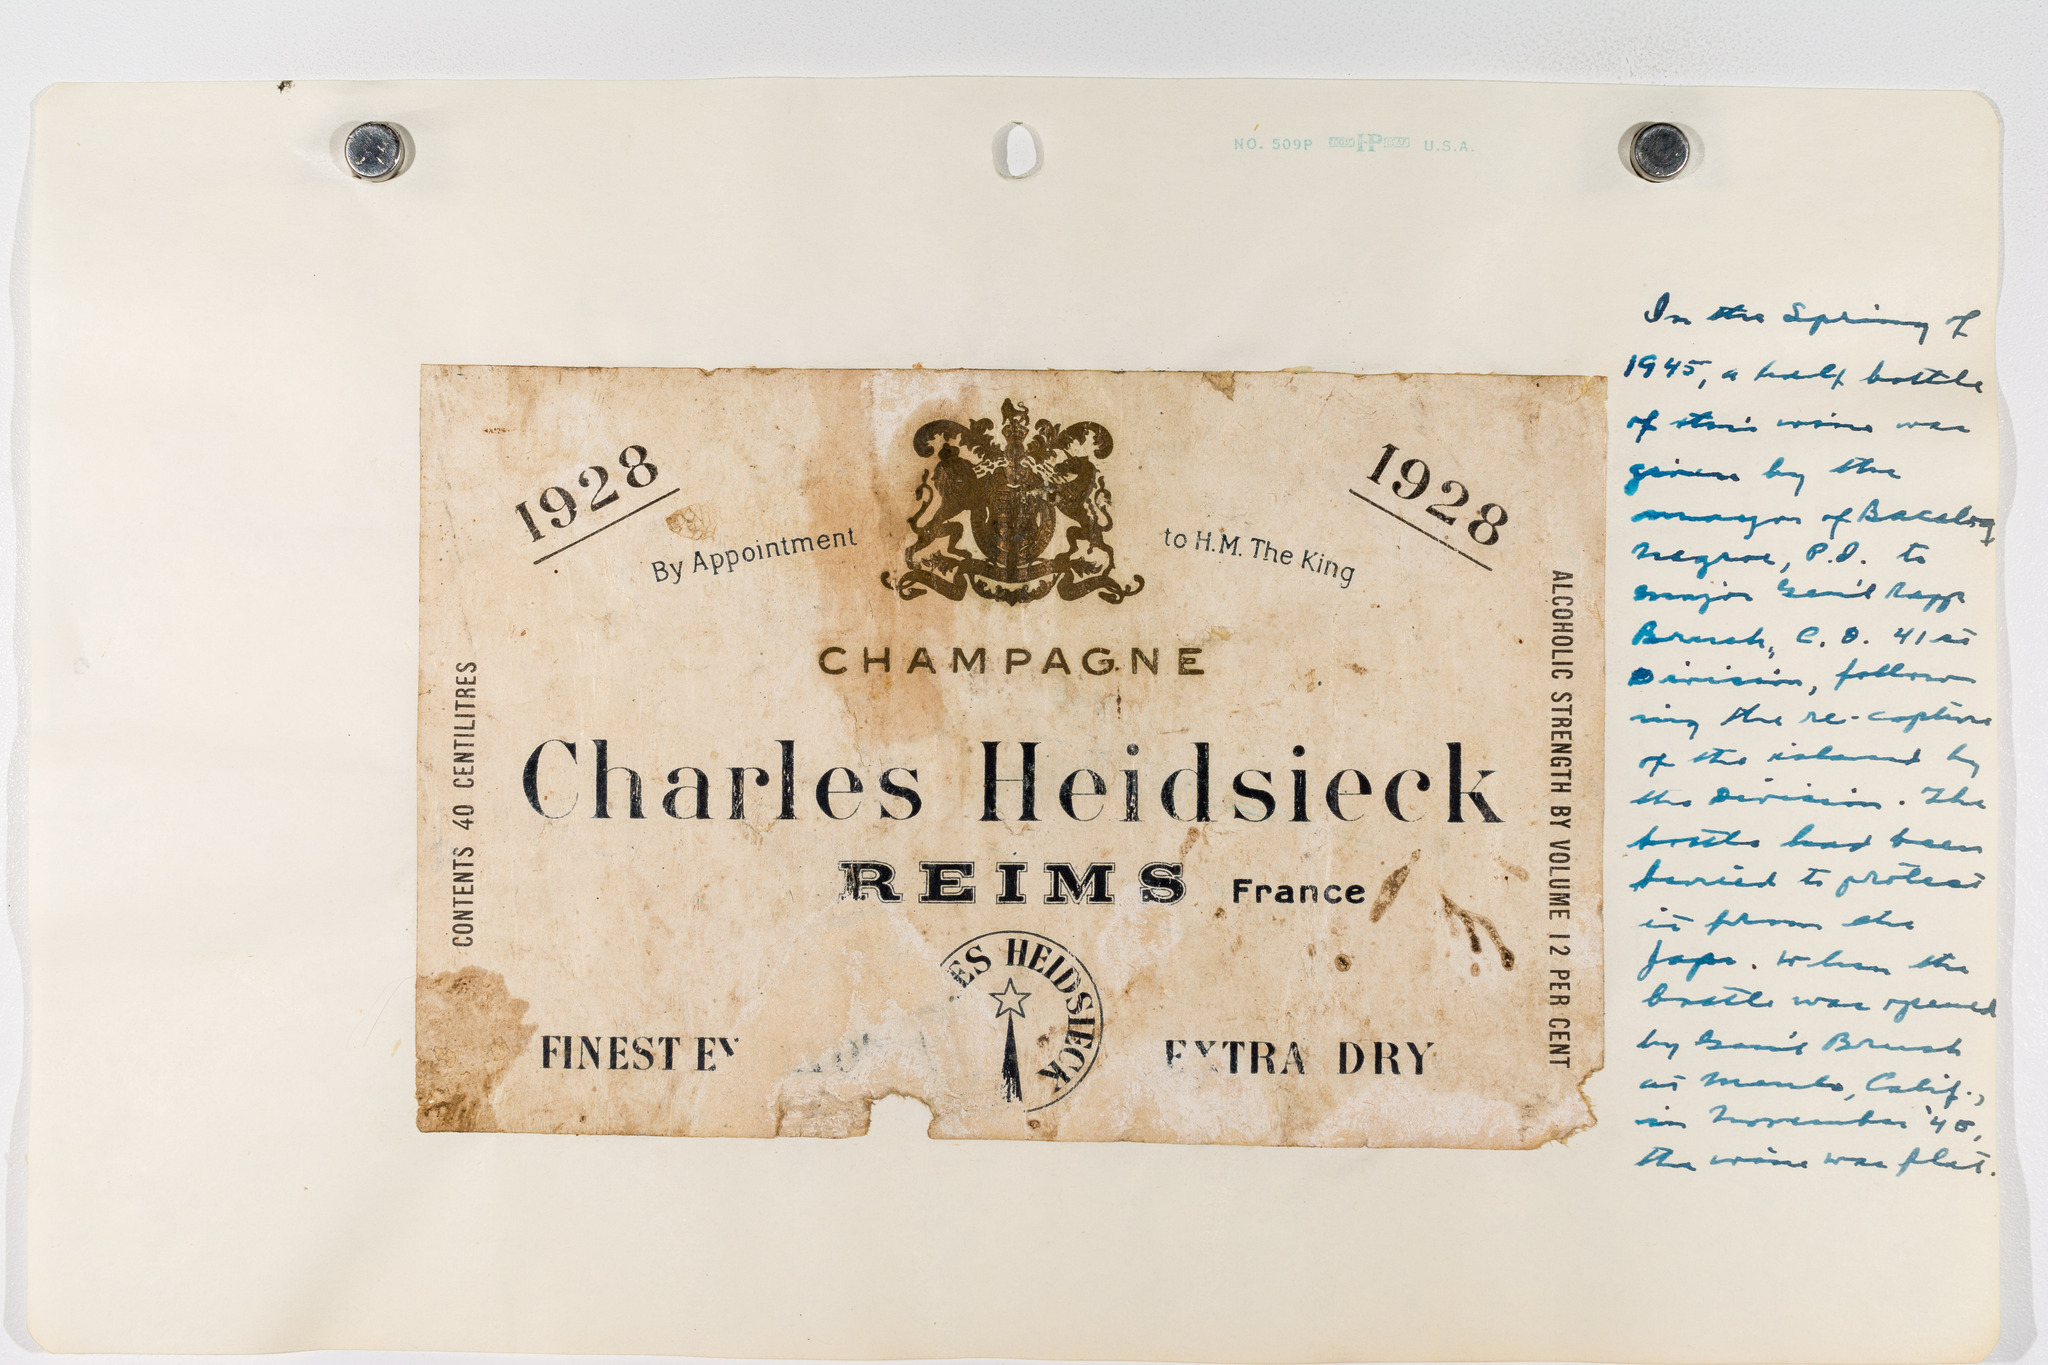 NO. 509P U.S.A.
1928
1928
By Appointment to H.M. The King
CHAMPAGNE
Charles Heidsieck
REIMS France
ES HEIDSIECK
FINEST EX
EXTRA DRY
CONTENTS 40 CENTILITRES
ALCOHOLIC STRENGTH BY VOLUME 12 PER CENT
In the Spring of
1945, a half bottle
of this wine was
given by the
mayor of Bacalog
Negroe, P.I. to
major Gen'l Rapp
Brush, C.O. 41st
Division, follow
ing the re-capture
of the island by
the Division. The
bottle had been
buried to protect
it from the
Japs. When the
bottle was opened
by Gen'l Brush
at Menlo, Calif.,
in November '45,
the wine was flat.